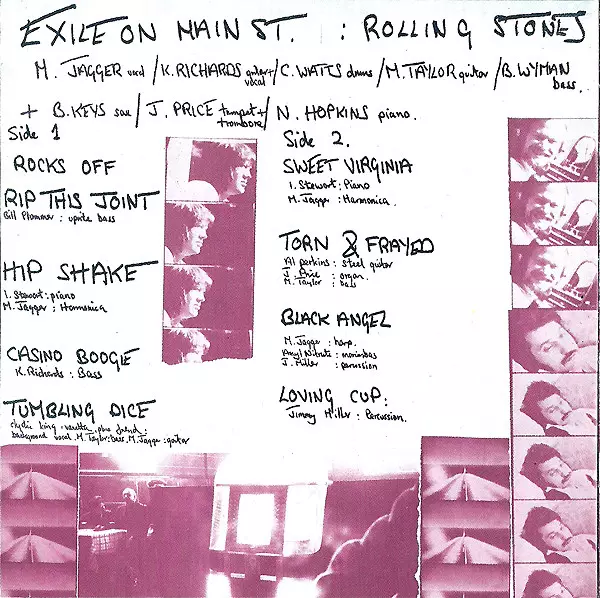 EXILE ON MAIN ST. : ROLLING STONES
M. JAGGER vocal / K. RICHARDS guitar + vocal / C. WATTS drums / M. TAYLOR guitar / B. WYMAN bass.
+ B. KEYS sax / J. PRICE trumpet + trombone / N. HOPKINS piano.
Side 1
ROCKS OFF
RIP THIS JOINT
Bill Plummer : uprite bass
HIP SHAKE
I. Stewart : piano
M. Jagger : Harmonica
CASINO BOOGIE
K. Richards : Bass
TUMBLING DICE
clydie king - vanetta, plus friend :
background vocal. M. Taylor : bass. M. Jagger : guitar
Side 2.
SWEET VIRGINIA
I. Stewart : Piano
M. Jagger : Harmonica.
TORN & FRAYED
Al perkins : steel guitar
J. Price : organ.
M. Taylor : bass
BLACK ANGEL
M. Jagger : harp.
Amyl Nitrate : marimbas
J. Miller : percussion
LOVING CUP :
Jimmy Miller : Percussion.